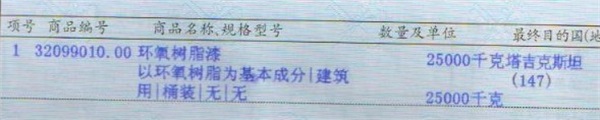 项号 商品编号 商品名称、规格型号 数量及单位 最终目的国(地
1 32099010.00 环氧树脂漆 25000千克塔吉克斯坦
以环氧树脂为基本成分|建筑 (147)
用|桶装|无|无 25000千克